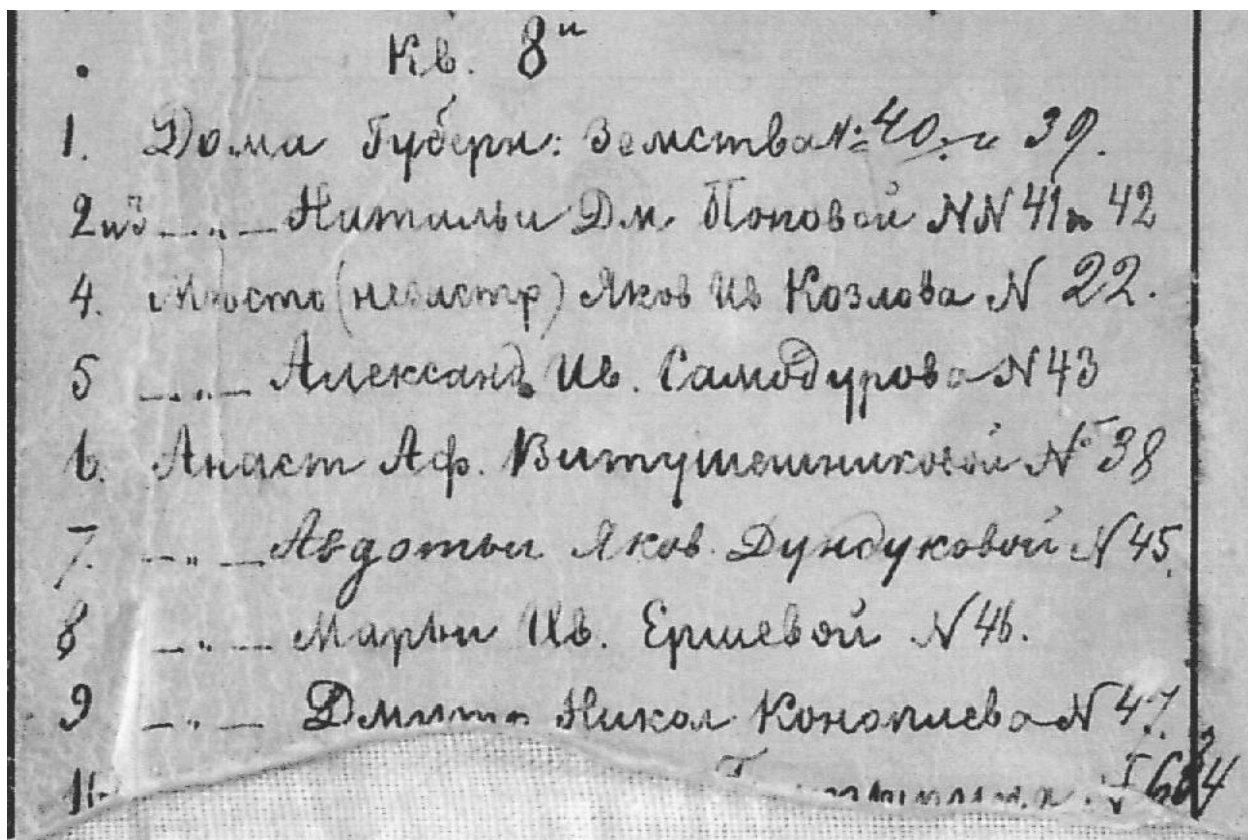 Кв. 8й
1. Дома Губерн: Земства №40 и 39.
2 и 3 —„— Натальи Дм. Поповой NN 41 и 42
4. Место (незастр) Яков Ив Козлова N 22.
5 —„— Александ Ив. Самодурова N 43
6. Анаст Аф. Витушешниковой № 38
7. —„— Авдотьи Яков. Дундуковой N 45.
8 —„— Марьи Ив. Ершевой N 46.
9 —„— Дмитр Никол Коноплева N 47.